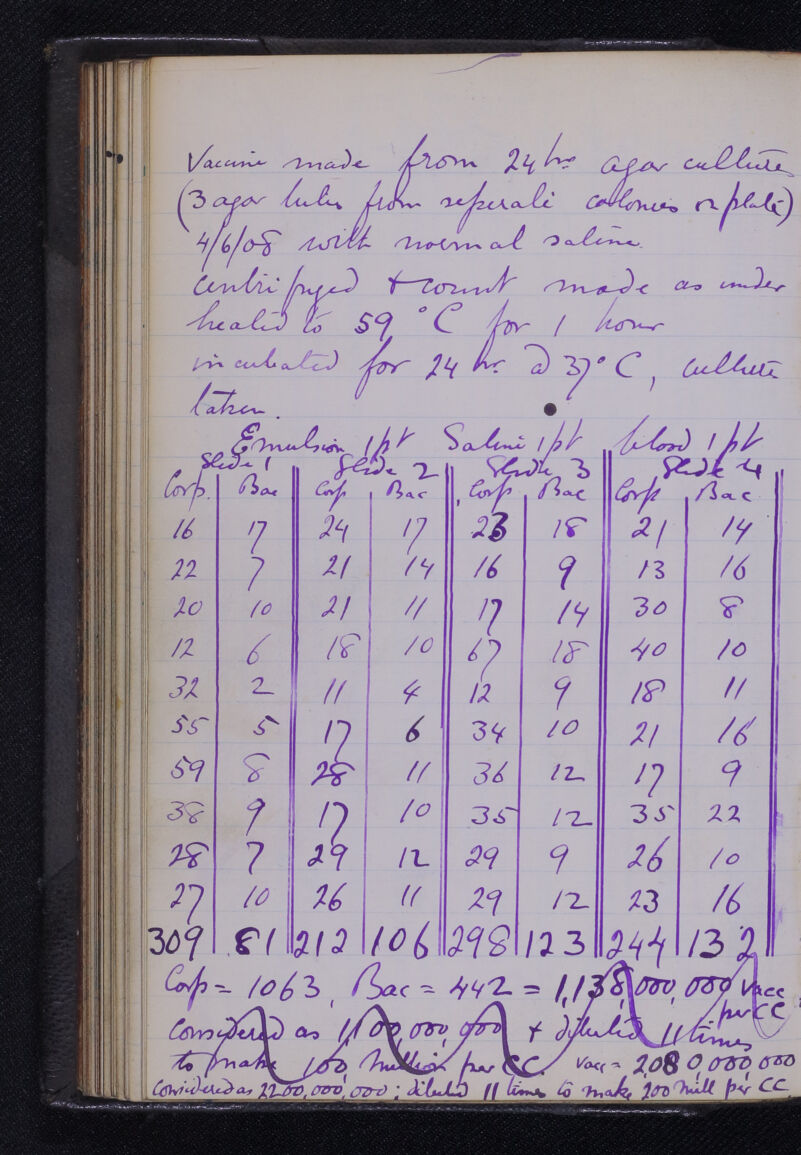 Vaccine made from 24 hr agar cultures
(3 agar tubes from seperate colonies on plate)
4/6/08 with normal saline.
Centrifuged + count made as under
heated to 59 °C for 1 hour
incubated for 24 hr @ 37° C, culture
taken.
Emulsion 1 pt Saline 1 pt blood 1 pt
Slide 1 Slide 2 Slide 3 Slide 4
Corp. Bac Corp Bac Corp Bac Corp Bac
16 17 24 17 23 18 21 14
22 7 21 14 16 9 13 16
20 10 21 11 17 14 30 8
12 6 18 10 67 18 40 10
32 2 11 4 12 9 18 11
55 5 17 6 34 10 21 16
59 8 28 11 36 12 17 9
38 9 17 10 35 12 35 22
28 7 29 12 29 9 26 10
27 10 26 11 29 12 23 16
309 81 212 106 298 123 244 132
Corp = 1063, Bac = 442 = 1,138,000,000 vacc
per CC
Considered as 1,100,000,000 + diluted 11 times
to make 100 million per CC. Vacc = 2080,000,000
Considered as 2200,000,000; diluted 11 times to make 200 mill per CC